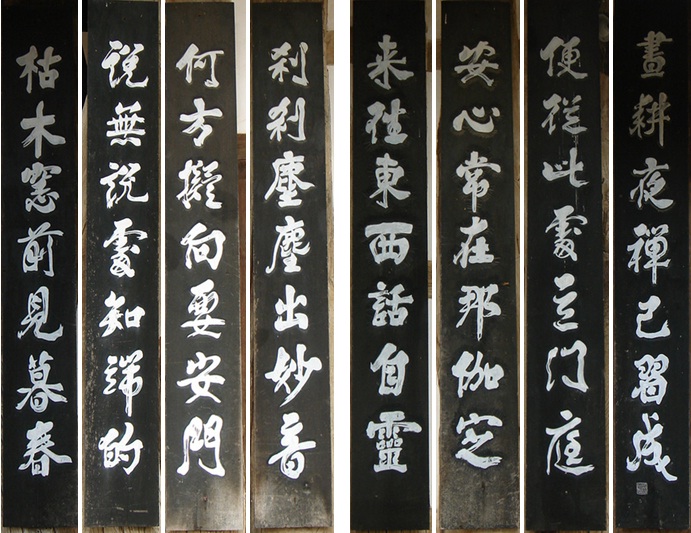 晝耕夜禪已習成
便從此處立門庭
安心常在那伽定
来往東西話自靈
刹刹塵塵出妙音
何方擬向要安門
說無說處知端的
枯木窓前見暮春